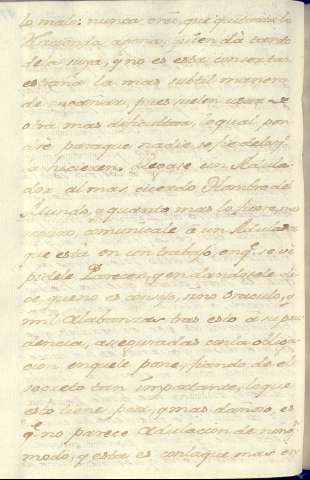 lo malo: nunca creo, que quitará la
Hazienda agena, quien dà tanto
de la suya, y no es esta, con ser tan
estraña la mas subtil manera
de engañar, pues suelen usar de
otra mas dificultosa, lo qual, pon
dré paraque nadie se fie de los q.e
la hicieren. Llegase un Adula
dor al mas cuerdo Hombre del
Mundo, y quanto mas lo fuere, mas
seguro, comunicale à un Adulador
que està en un trabajo, en q.e se vé
pidele Parecer, y en dandosele di
ce que no es consejo, sino Oraculo, y
mil Alabanzas tras esto à su pru
dencia, aseguradas con la obliga
cion en que le pone, fiando de él
secreto tan importante, lo que
esto tiene peor, y mas dañoso, es
q.e no parece Adulacion de ning.n
modo, y esta es con la que mas en